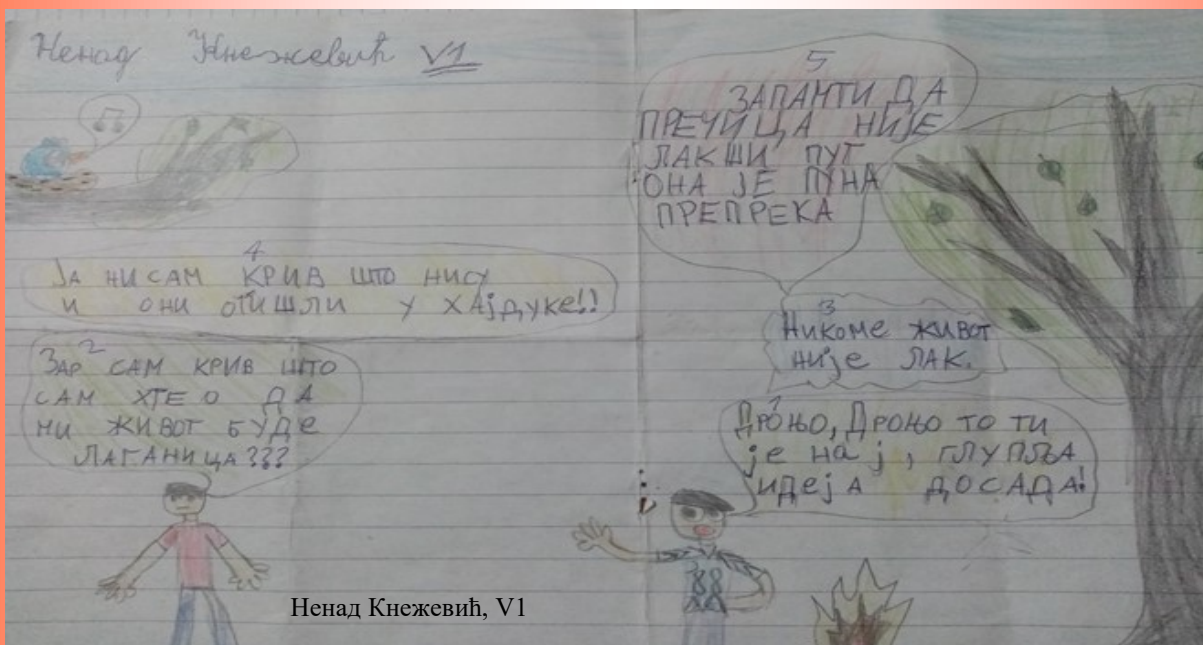 Ненад Кнежевић V1
5
ЗАПАМТИ ДА
ПРЕЧИЦА НИЈЕ
ЛАКШИ ПУТ
ОНА ЈЕ ПУНА
ПРЕПРЕКА
4
ЈА НИСАМ КРИВ ШТО НИСУ
И ОНИ ОТИШЛИ У ХАЈДУКЕ!!
3
НИКОМЕ ЖИВОТ
НИЈЕ ЛАК.
2
ЗАР САМ КРИВ ШТО
САМ ХТЕО ДА
МИ ЖИВОТ БУДЕ
ЛАГАНИЦА???
1
ДРОЊО, ДРОЊО ТО ТИ
ЈЕ НАЈ, ГЛУПЉА
ИДЕЈА ДОСАДА!
88
Ненад Кнежевић, V1